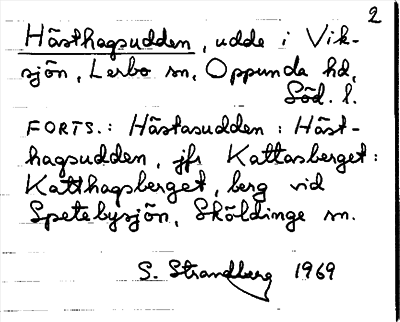 2
Hästhagsudden, udde i Vik-
sjön, Lerbo sn, Oppunda hd,
Söd. l.
FORTS.: Hästasudden: Häst-
hagsudden, jfr Kattasberget:
Katthagsberget, berg vid
Spetebysjön, Sköldinge sn.
S. Strandberg 1969